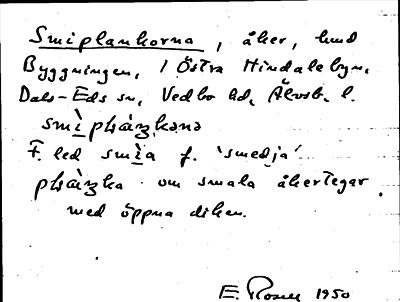 Smiplankorna, åker, hmd
Byggningen, 1 Östra Hindalebyn,
Dals-Eds sn, Vedbo hd, Älvsb. l.
smì̱ plàŋkənə
F. led smì̱a f. 'smedja'.
plàŋka om smala åkertegar
med öppna diken.
E. 1950